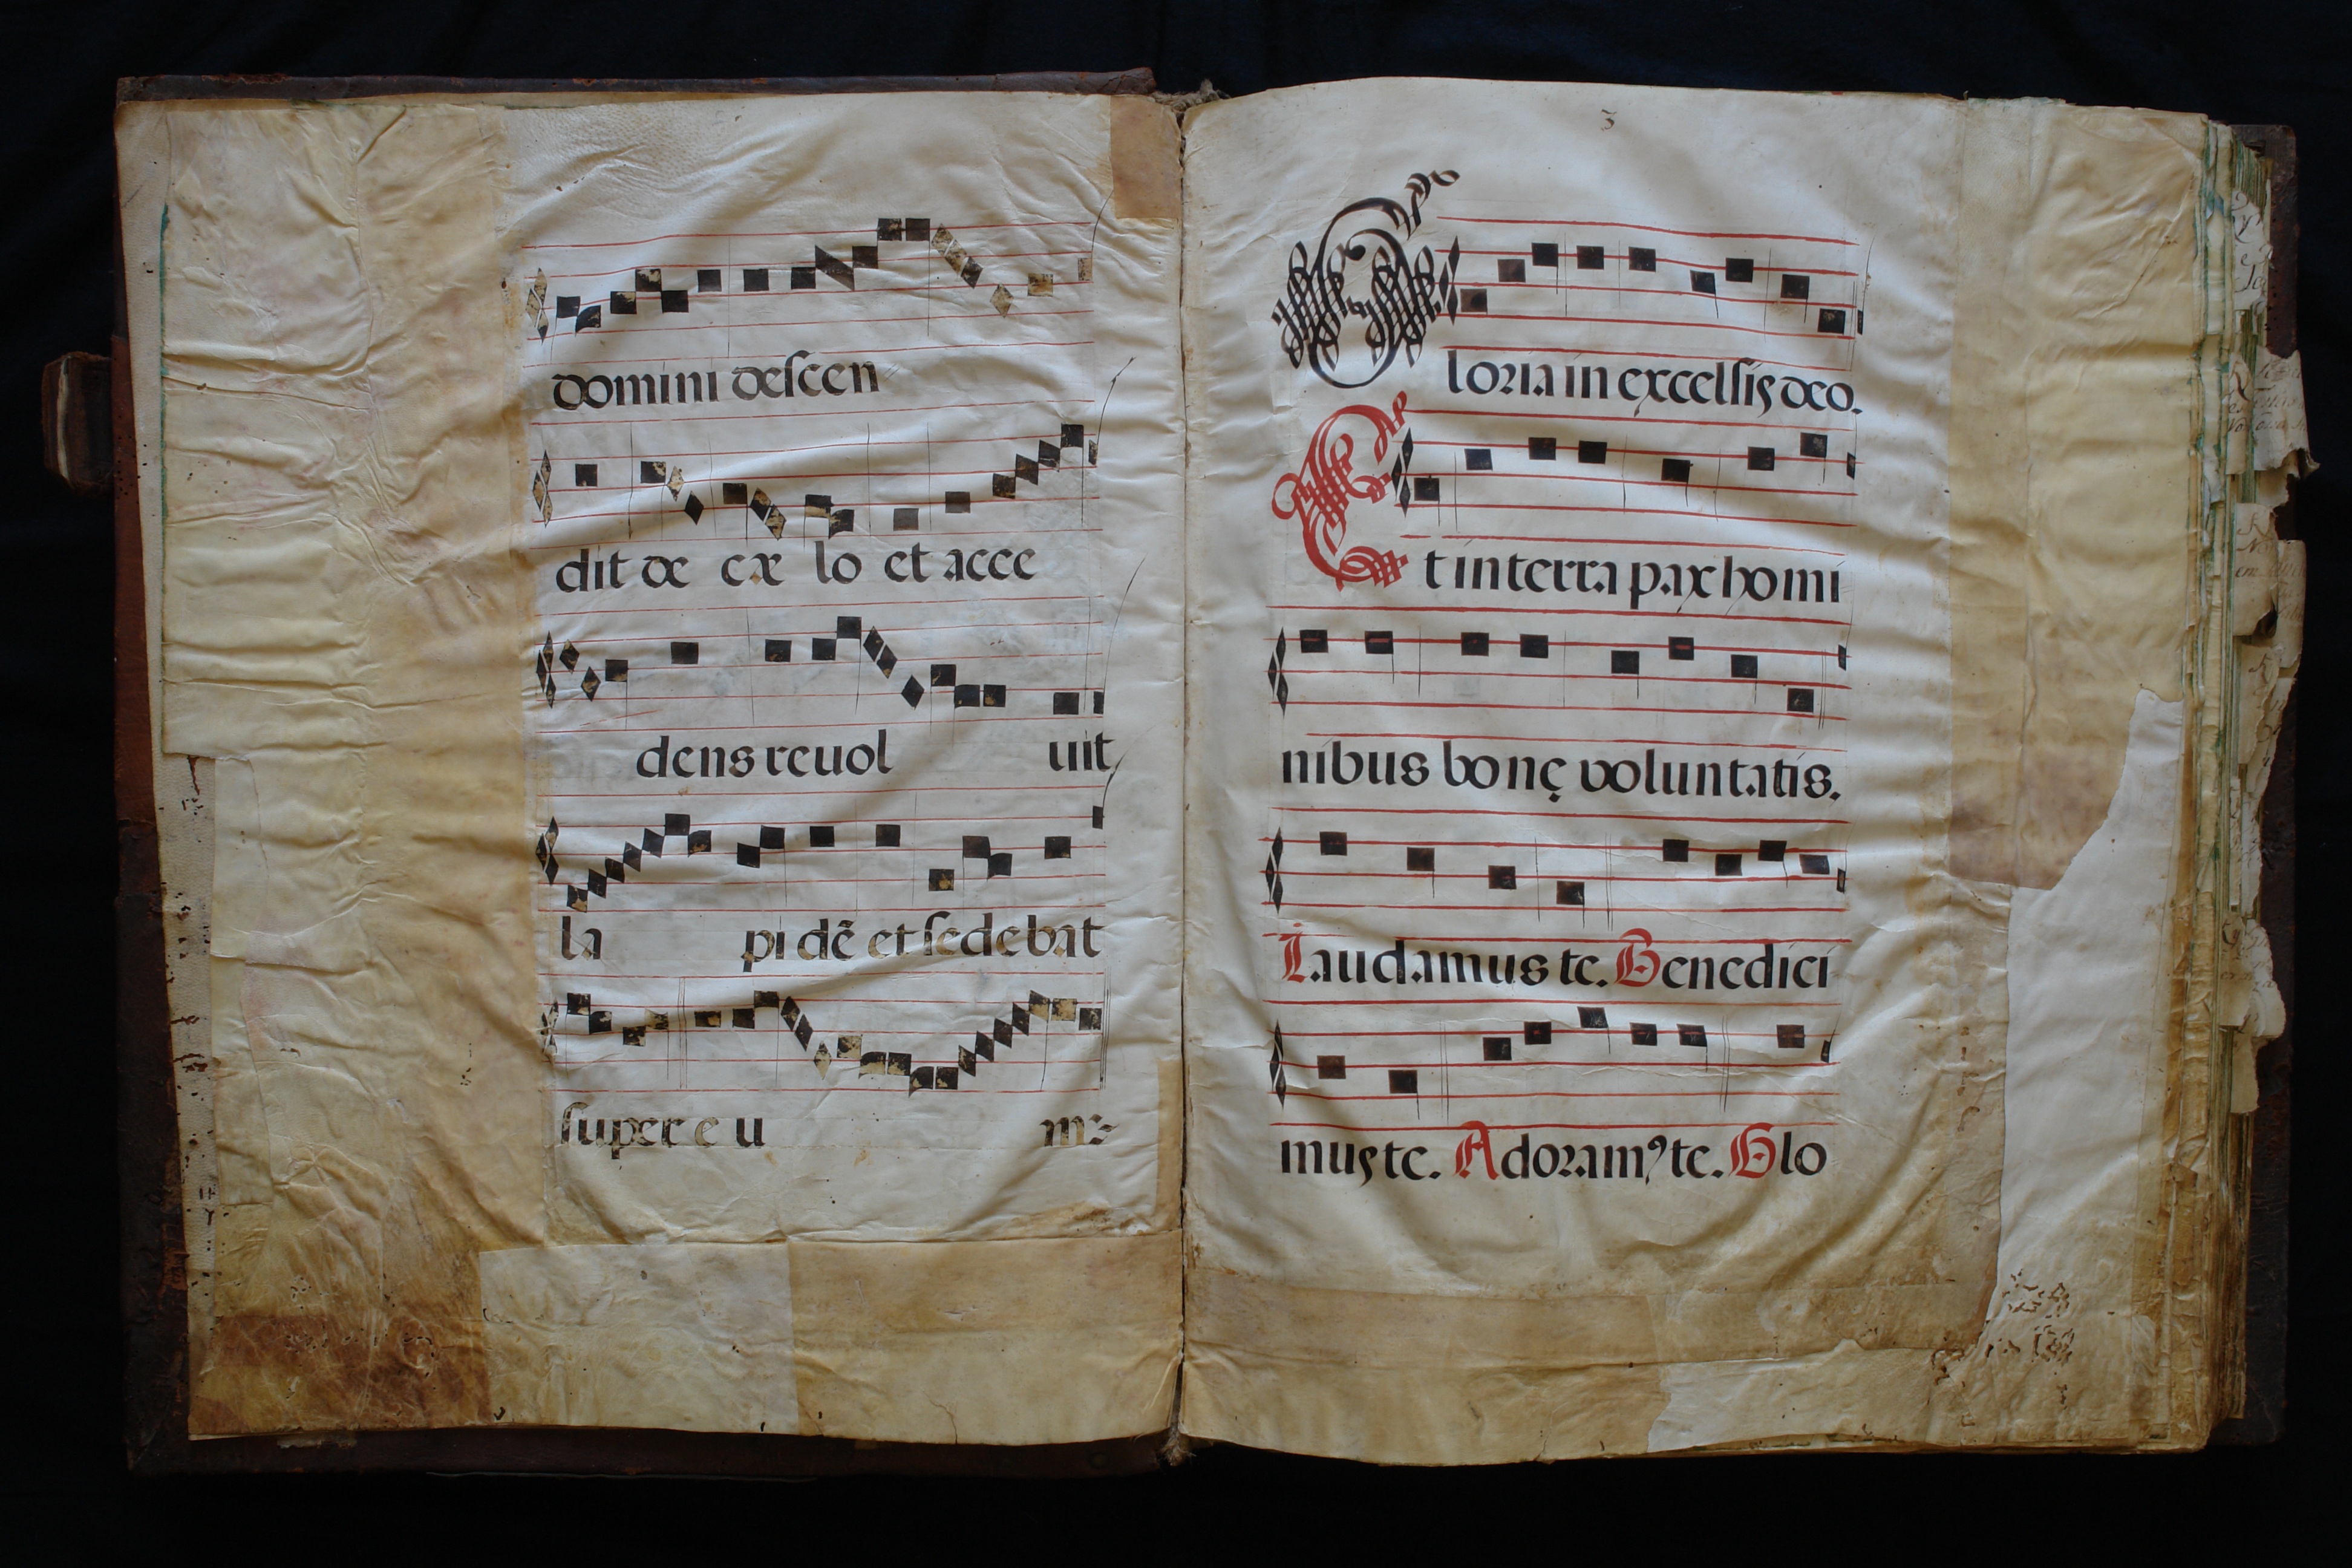 domini descen
dit de cæ lo et acce
dens reuol uit
la pi dẽ et sedebat
super e u m:-
3
Gloria in excelsis deo.
Et in terra pax homi
nibus bonę voluntatis.
Laudamus te. Benedici
mus te. Adoramꝰ te. Glo